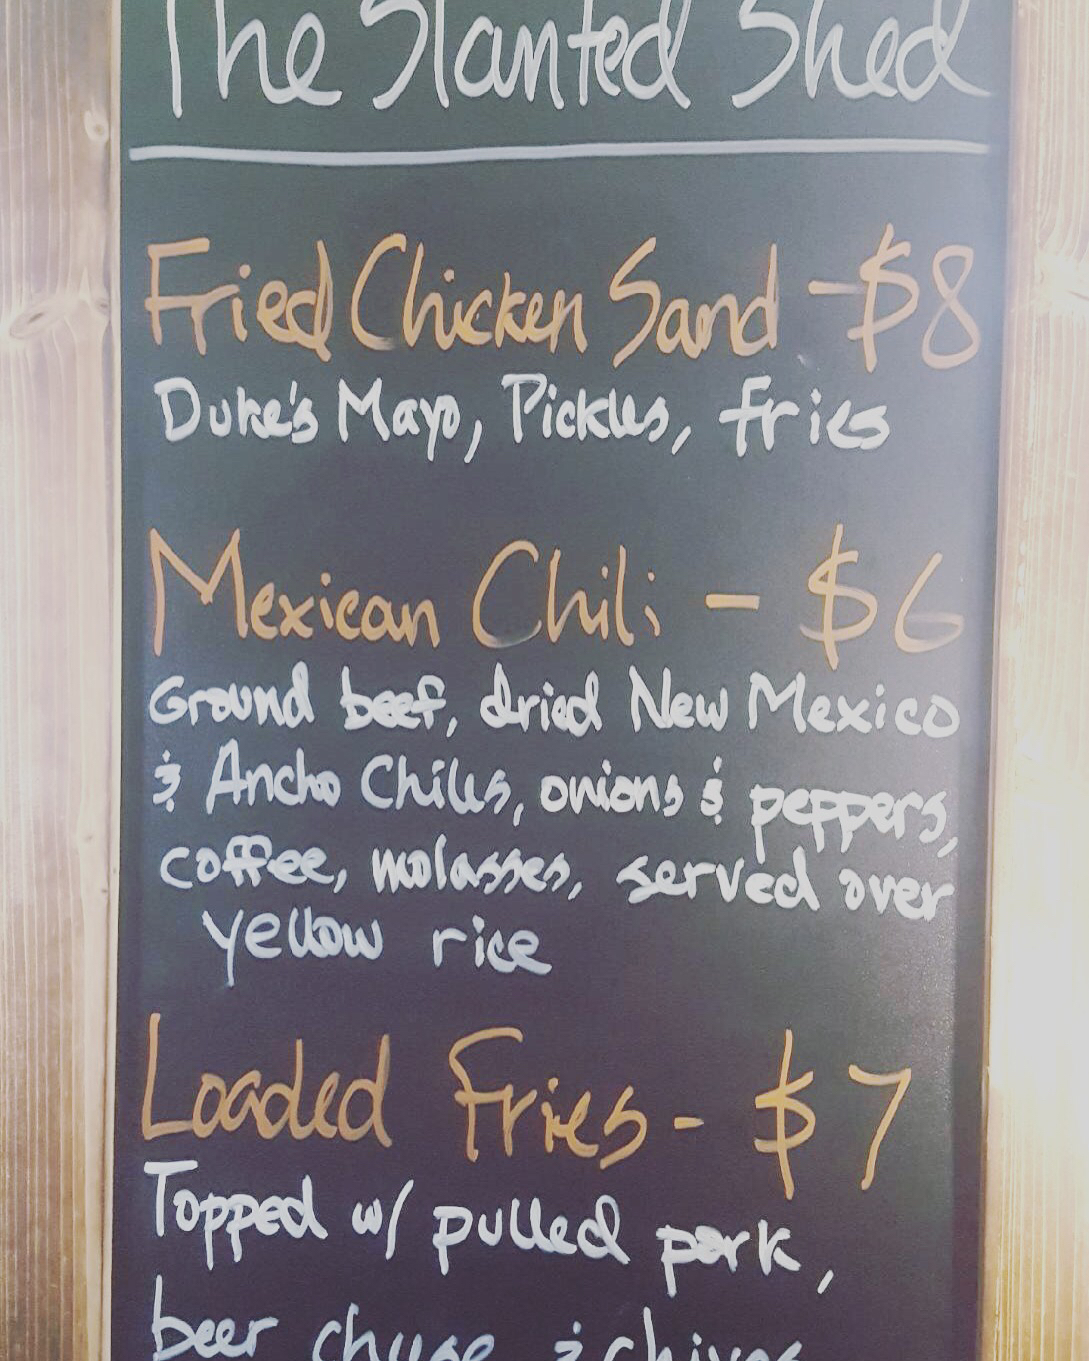 The Slanted Shed
Fried Chicken Sand - $8
Duke's Mayo, Pickles, fries
Mexican Chili - $6
Ground beef, dried New Mexico
& Ancho Chiles, onions & peppers,
coffee, molasses, served over
yellow rice
Loaded Fries - $7
Topped w/ pulled pork,
beer cheese & chives